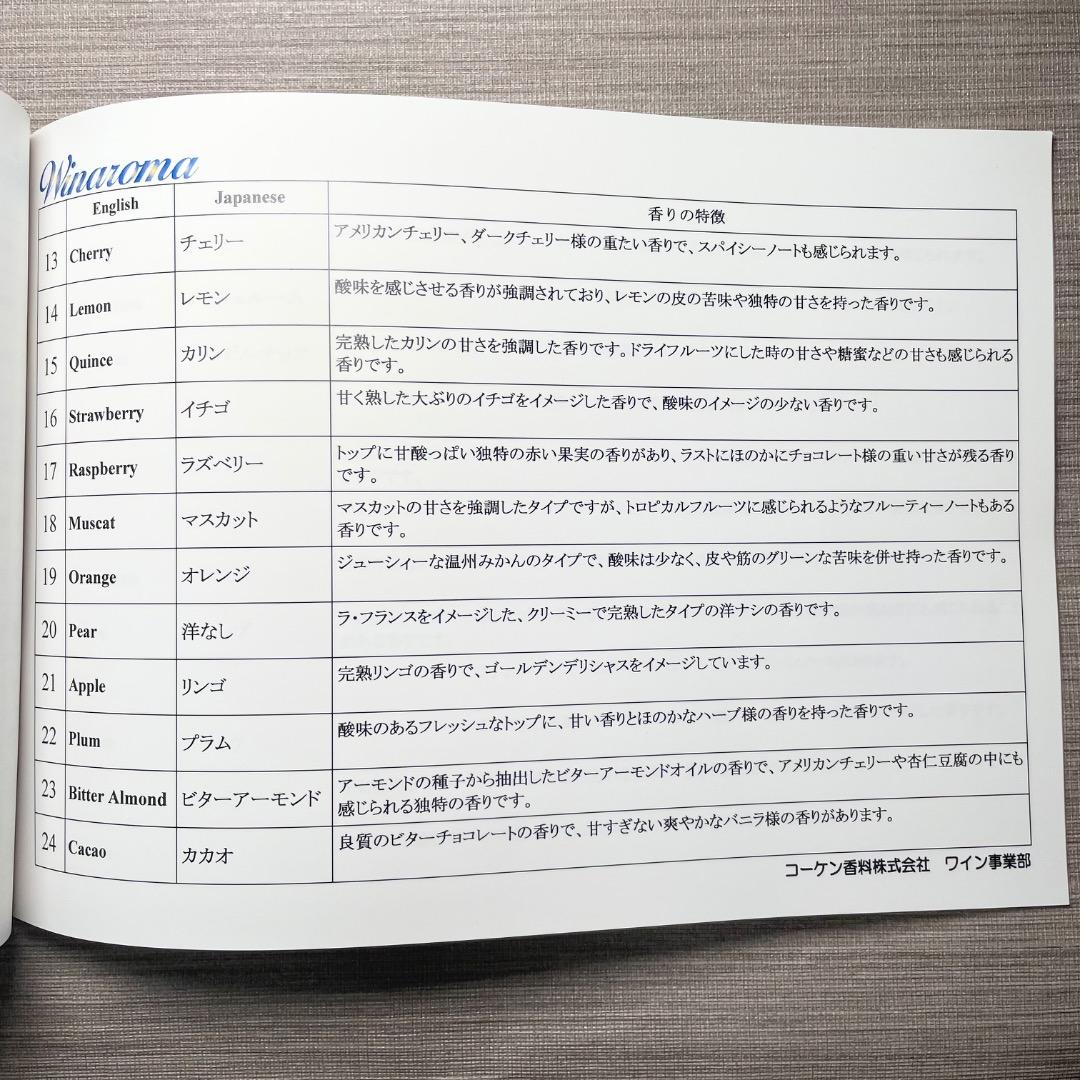 Winaroma
English Japanese 香りの特徴
13 Cherry チェリー アメリカンチェリー、ダークチェリー様の重たい香りで、スパイシーノートも感じられます。
14 Lemon レモン 酸味を感じさせる香りが強調されており、レモンの皮の苦味や独特の甘さを持った香りです。
15 Quince カリン 完熟したカリンの甘さを強調した香りです。ドライフルーツにした時の甘さや糖蜜などの甘さも感じられる
香りです。
16 Strawberry イチゴ 甘く熟した大ぶりのイチゴをイメージした香りで、酸味のイメージの少ない香りです。
17 Raspberry ラズベリー トップに甘酸っぱい独特の赤い果実の香りがあり、ラストにほのかにチョコレート様の重い甘さが残る香り
です。
18 Muscat マスカット マスカットの甘さを強調したタイプですが、トロピカルフルーツに感じられるようなフルーティーノートもある
香りです。
19 Orange オレンジ ジューシィーな温州みかんのタイプで、酸味は少なく、皮や筋のグリーンな苦味を併せ持った香りです。
20 Pear 洋なし ラ・フランスをイメージした、クリーミーで完熟したタイプの洋ナシの香りです。
21 Apple リンゴ 完熟リンゴの香りで、ゴールデンデリシャスをイメージしています。
22 Plum プラム 酸味のあるフレッシュなトップに、甘い香りとほのかなハーブ様の香りを持った香りです。
23 Bitter Almond ビターアーモンド アーモンドの種子から抽出したビターアーモンドオイルの香りで、アメリカンチェリーや杏仁豆腐の中にも
感じられる独特の香りです。
24 Cacao カカオ 良質のビターチョコレートの香りで、甘すぎない爽やかなバニラ様の香りがあります。
コーケン香料株式会社 ワイン事業部